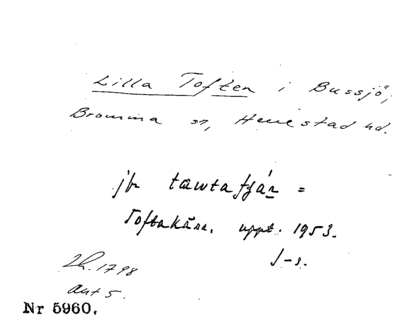 Lilla Toften i Bussjö,
Bromma sn, Herrestad hd.
jfr tawtafjár =
Toftakärr. uppt. 1953.
J-s.
LR. 1798
akt 5.
Nr 5960.